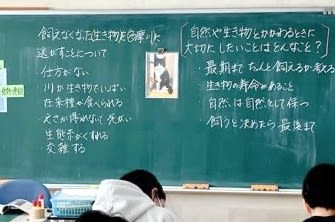 飼えなくなった生き物を多摩川に
逃がすことについて
・仕方がない
・川が生き物でいっぱい
・在来種が食べられる
・えさが得れなくて死がい
・生態系がくずれる
・交雑する
自然や生き物とかかわるときに
大切にしたいことはどんなこと?
・最期までちゃんと飼えるか考える
・生き物の寿命があること
・自然は自然として保つ
・飼うと決めたら最後まで